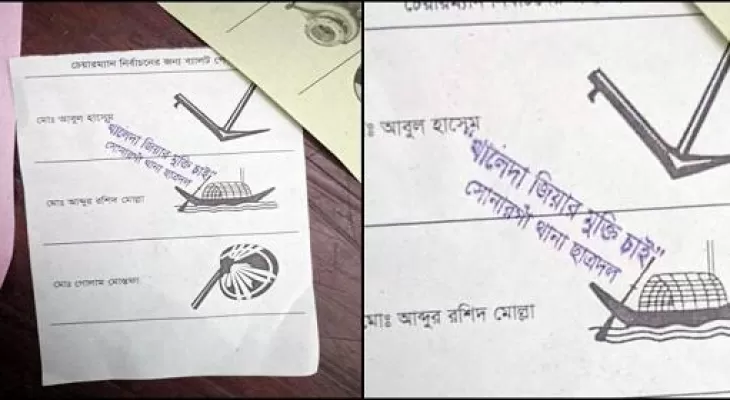 চেয়ারম্যান নির্বাচনের জন্য ব্যালট পে
মোঃ আবুল হাসেম
"খালেদা জিয়ার মুক্তি চাই"
সোনারগাঁ থানা ছাত্রদল
মোঃ আব্দুর রশিদ মোল্লা
মোঃ গোলাম মোস্তফা
চেয়ারম্যান নির্বাচনের
ঃ আবুল হাসেম
"খালেদা জিয়ার মুক্তি চাই"
সোনারগাঁ থানা ছাত্রদল
মোঃ আব্দুর রশিদ মোল্লা